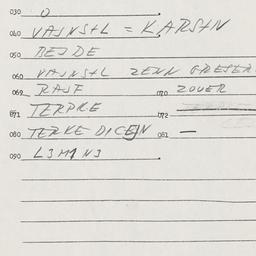 030 0
040 VAJNS+L = KARS+N
050 BEJDE
060 VAJNS+L ZENN GRESER
069 BAJF 070 ZOUER
071 TERPRE 072
080 TERKE DICEJN 081 —
090 L3M1N3